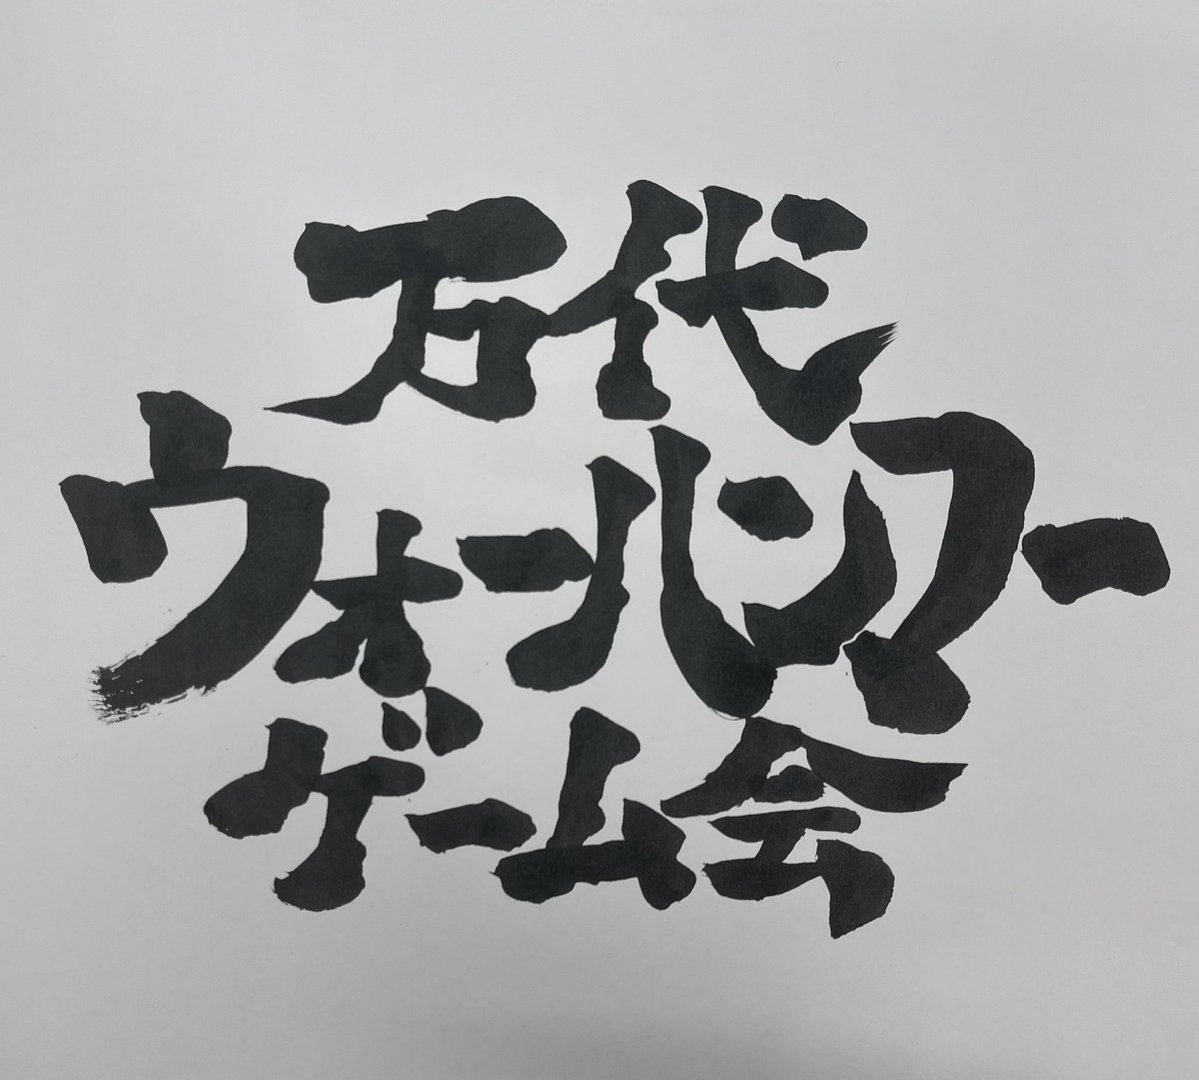 万代
ウォーハンマー
ゲーム会